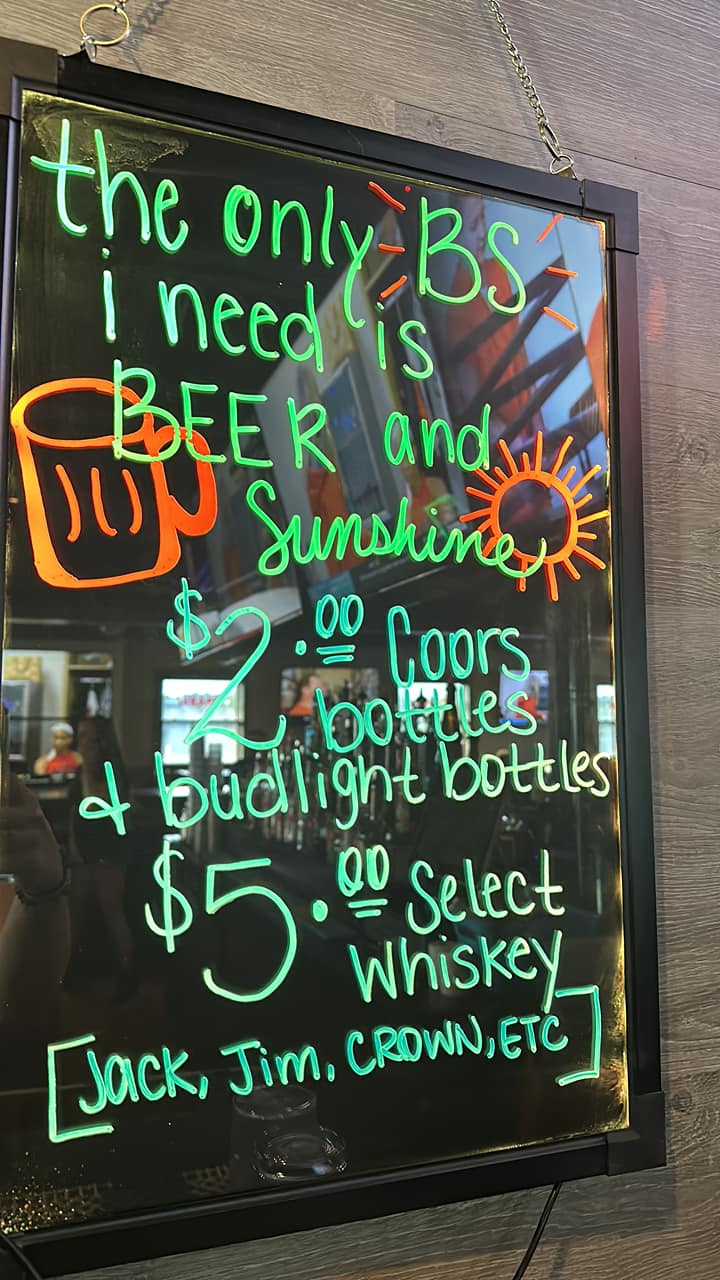 the only BS
i need is
BEER and
Sunshine
$2.00 Coors
bottles
& budlight bottles
$5.00 Select
Whiskey
[Jack, Jim, CROWN, ETC]